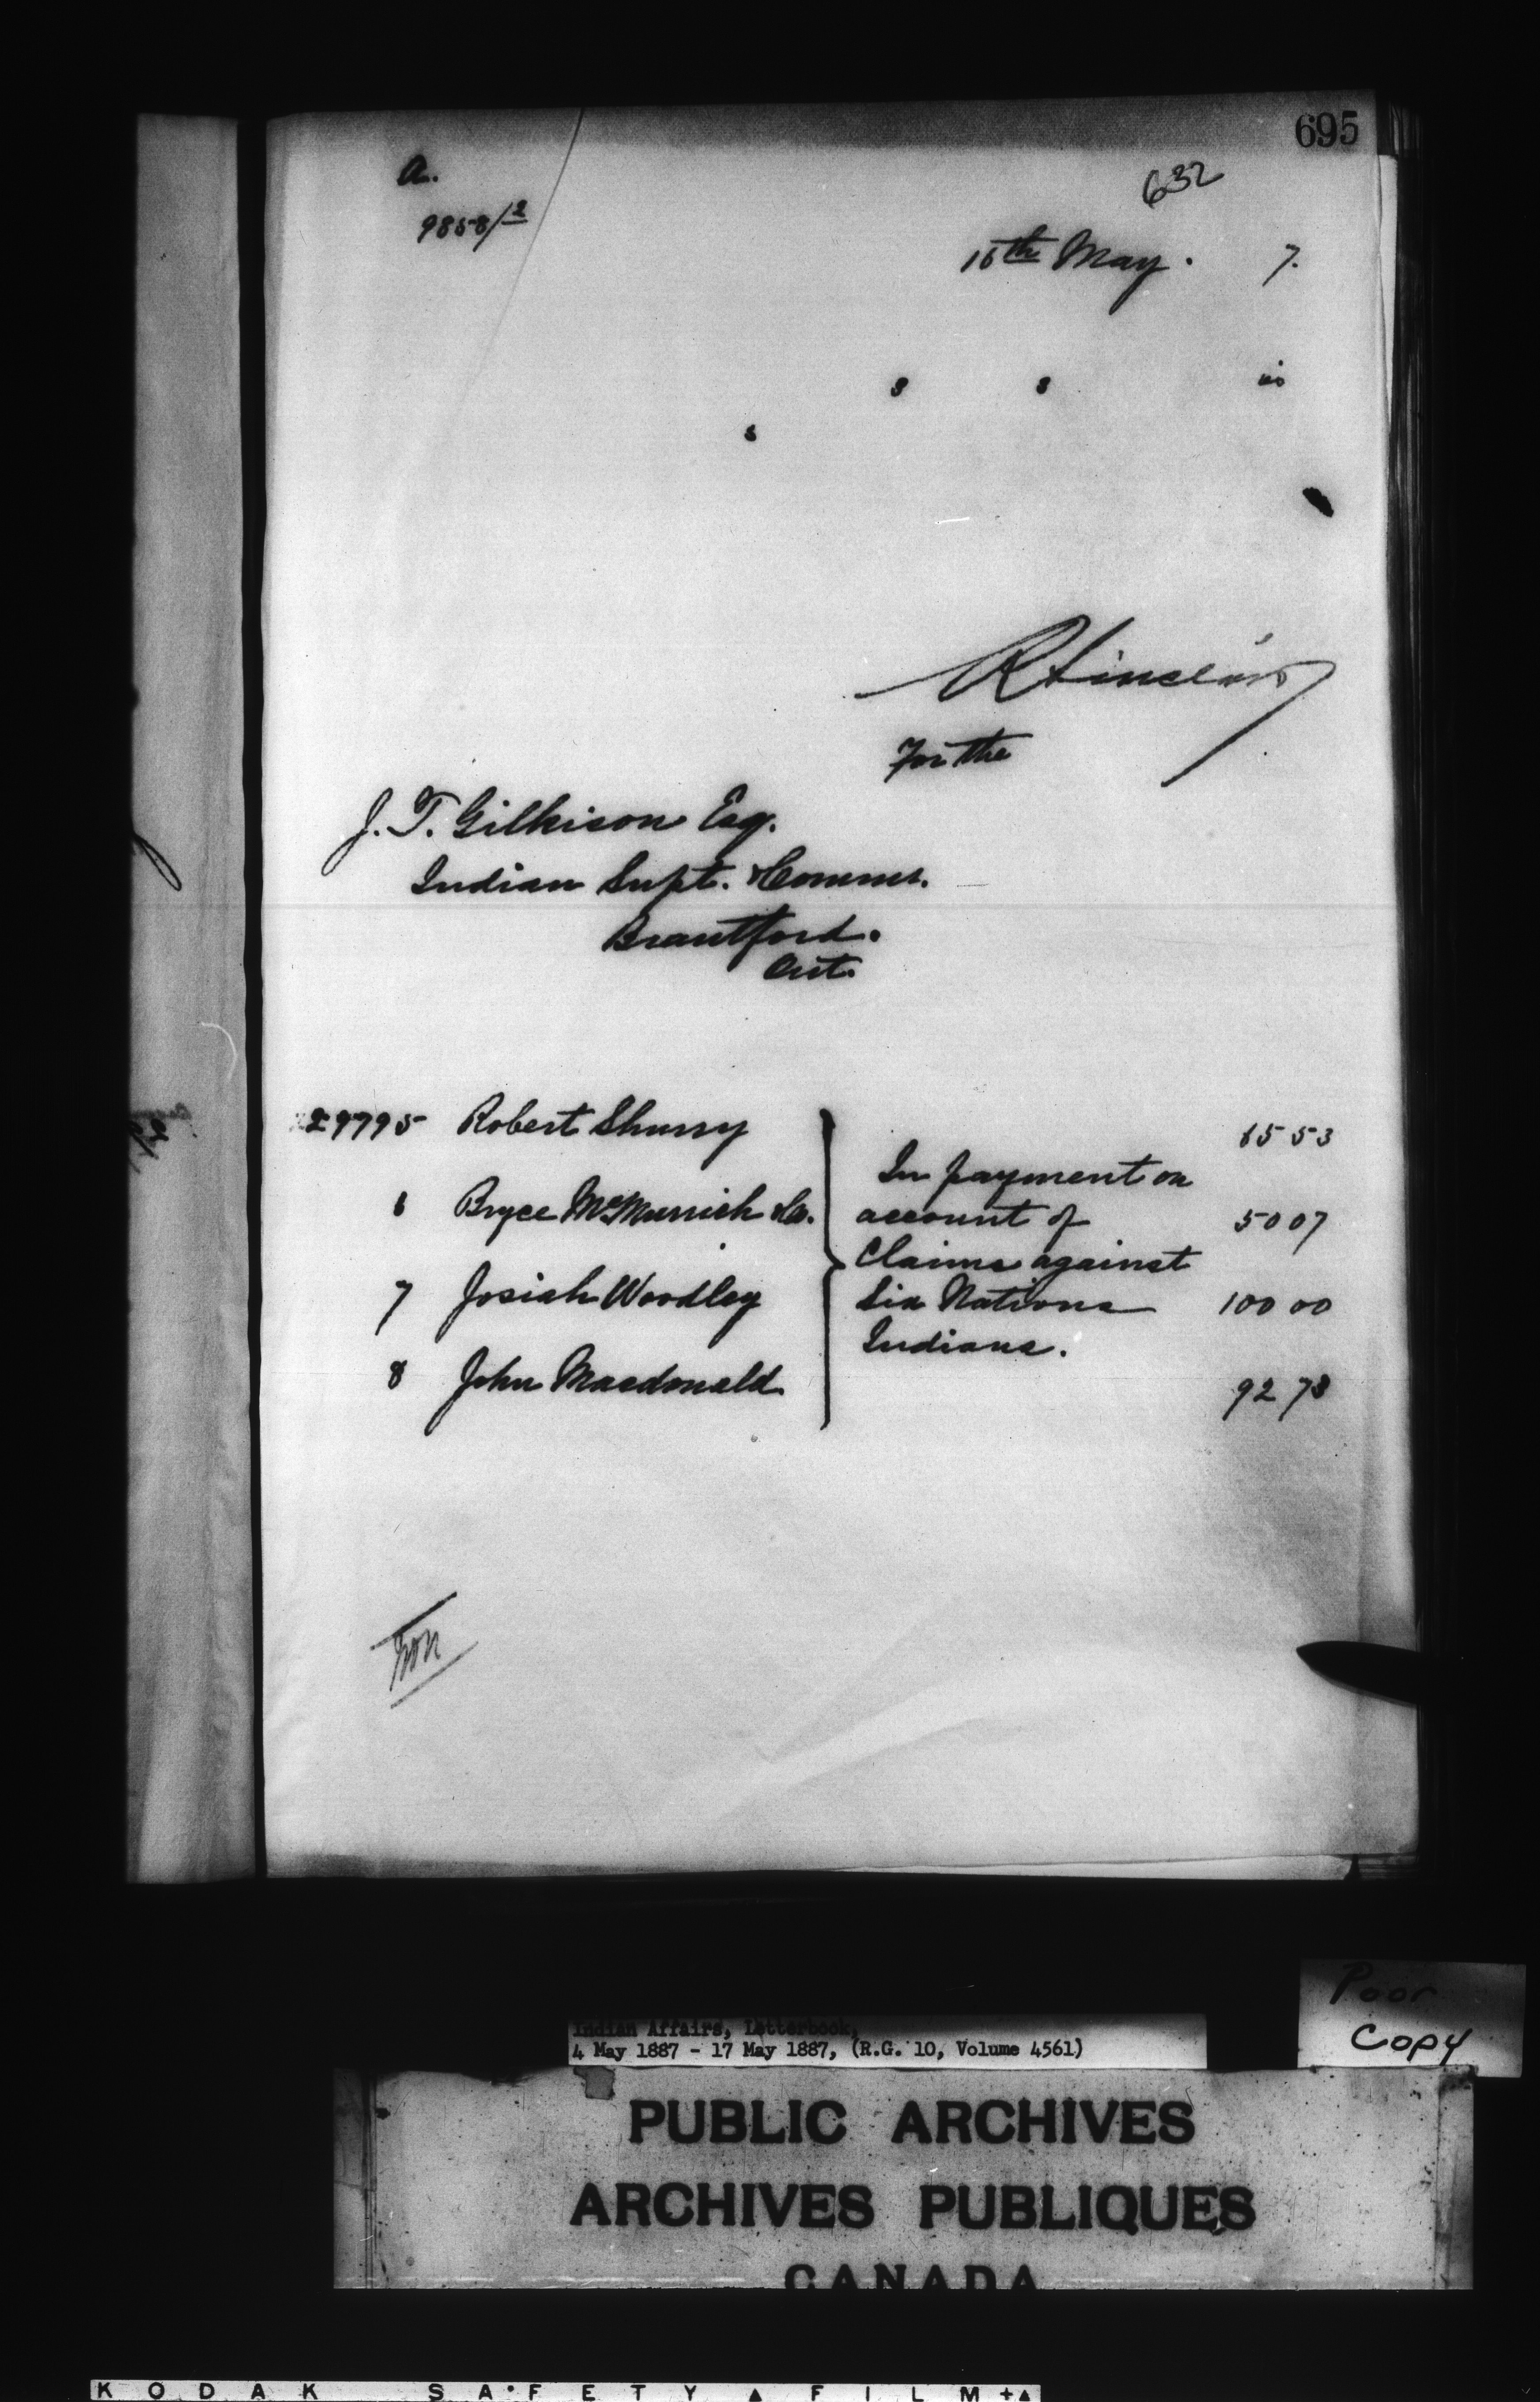 695
632
a.
9858/2
16th May. 7.
s s is
s
R Sinclair
For the
J. T. Gilkison Esq.
Indian Supt. & Commr.
Brantford.
Ont.
29795 Robert Shurry 65 53
6 Bryce McMurrich & Co. 50 07
7 Josiah Woodley 100 00
8 John Macdonald 92 78
In payment on
account of
Claims against
Six Nations
Indians.
Poor
Copy
Indian Affairs, Letterbook,
4 May 1887 - 17 May 1887, (R.G. 10, Volume 4561)
PUBLIC ARCHIVES
ARCHIVES PUBLIQUES
CANADA
KODAK SAFETY FILM